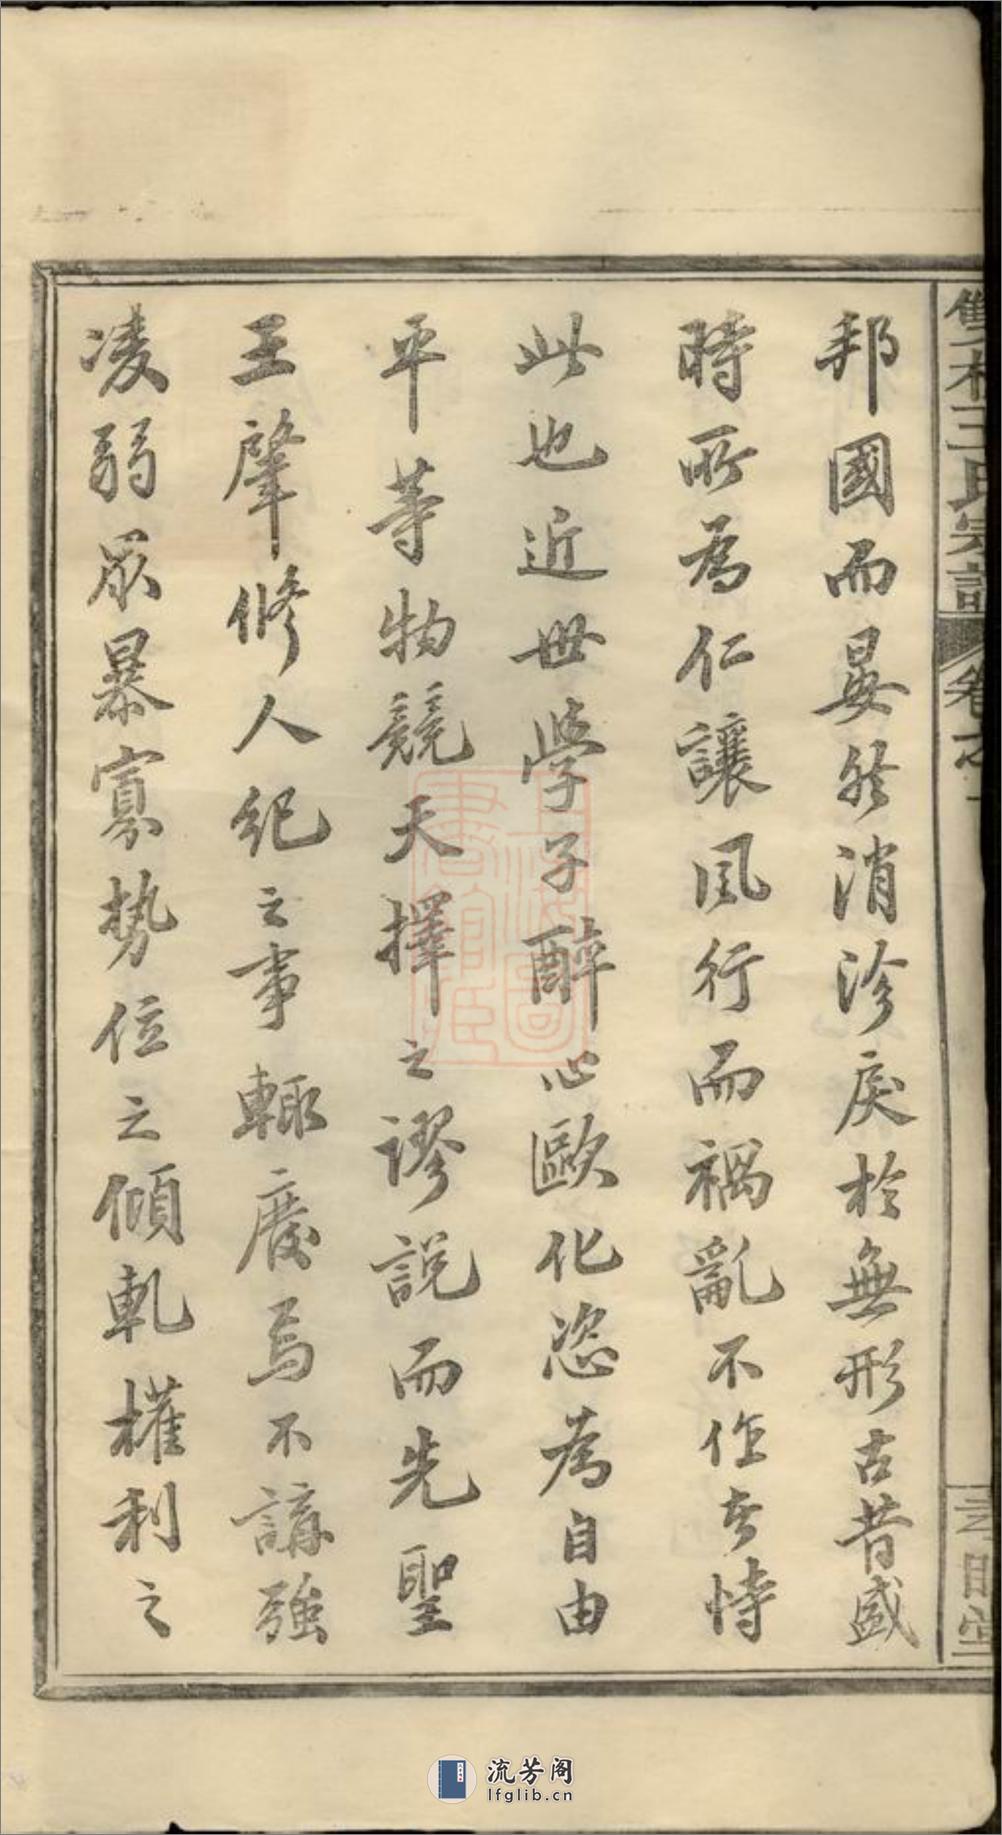 邦國而晏然消沴戾於無形古昔盛
時所為仁讓風行而禍亂不作者恃
此也近世學子醉心歐化恣為自由
平等物競天擇之謬說而先聖
王肇修人紀之事輒廢焉不講強
凌弱眾暴寡勢位之傾軋權利之
王氏宗譜
卷之
上海圖書館藏
流芳阁
lfglib.cn